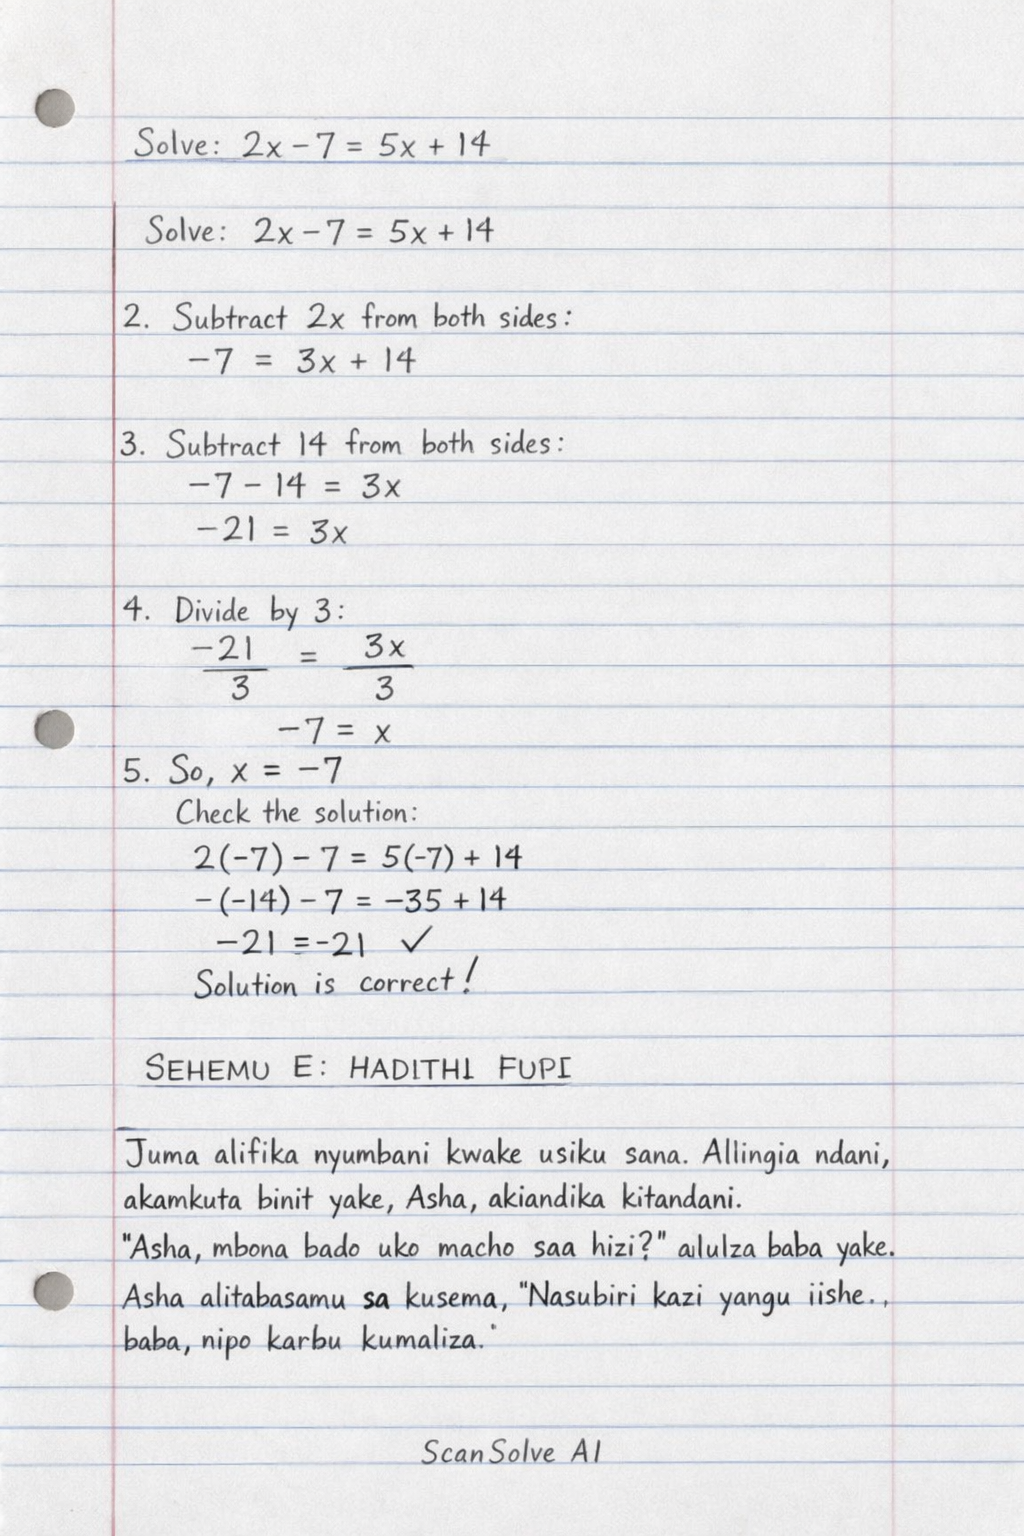 Solve: 2x - 7 = 5x + 14
Solve: 2x - 7 = 5x + 14
2. Subtract 2x from both sides:
-7 = 3x + 14
3. Subtract 14 from both sides:
-7 - 14 = 3x
-21 = 3x
4. Divide by 3:
-21/3 = 3x/3
-7 = x
5. So, x = -7
Check the solution:
2(-7) - 7 = 5(-7) + 14
-(-14) - 7 = -35 + 14
-21 = -21 ✓
Solution is correct!
SEHEMU E: HADITHI FUPI
Juma alifika nyumbani kwake usiku sana. Allingia ndani,
akamkuta binit yake, Asha, akiandika kitandani.
"Asha, mbona bado uko macho saa hizi?" ailulza baba yake.
Asha alitabasamu sa kusema, "Nasubiri kazi yangu iishe.,
baba, nipo karbu kumaliza.'
ScanSolve AI